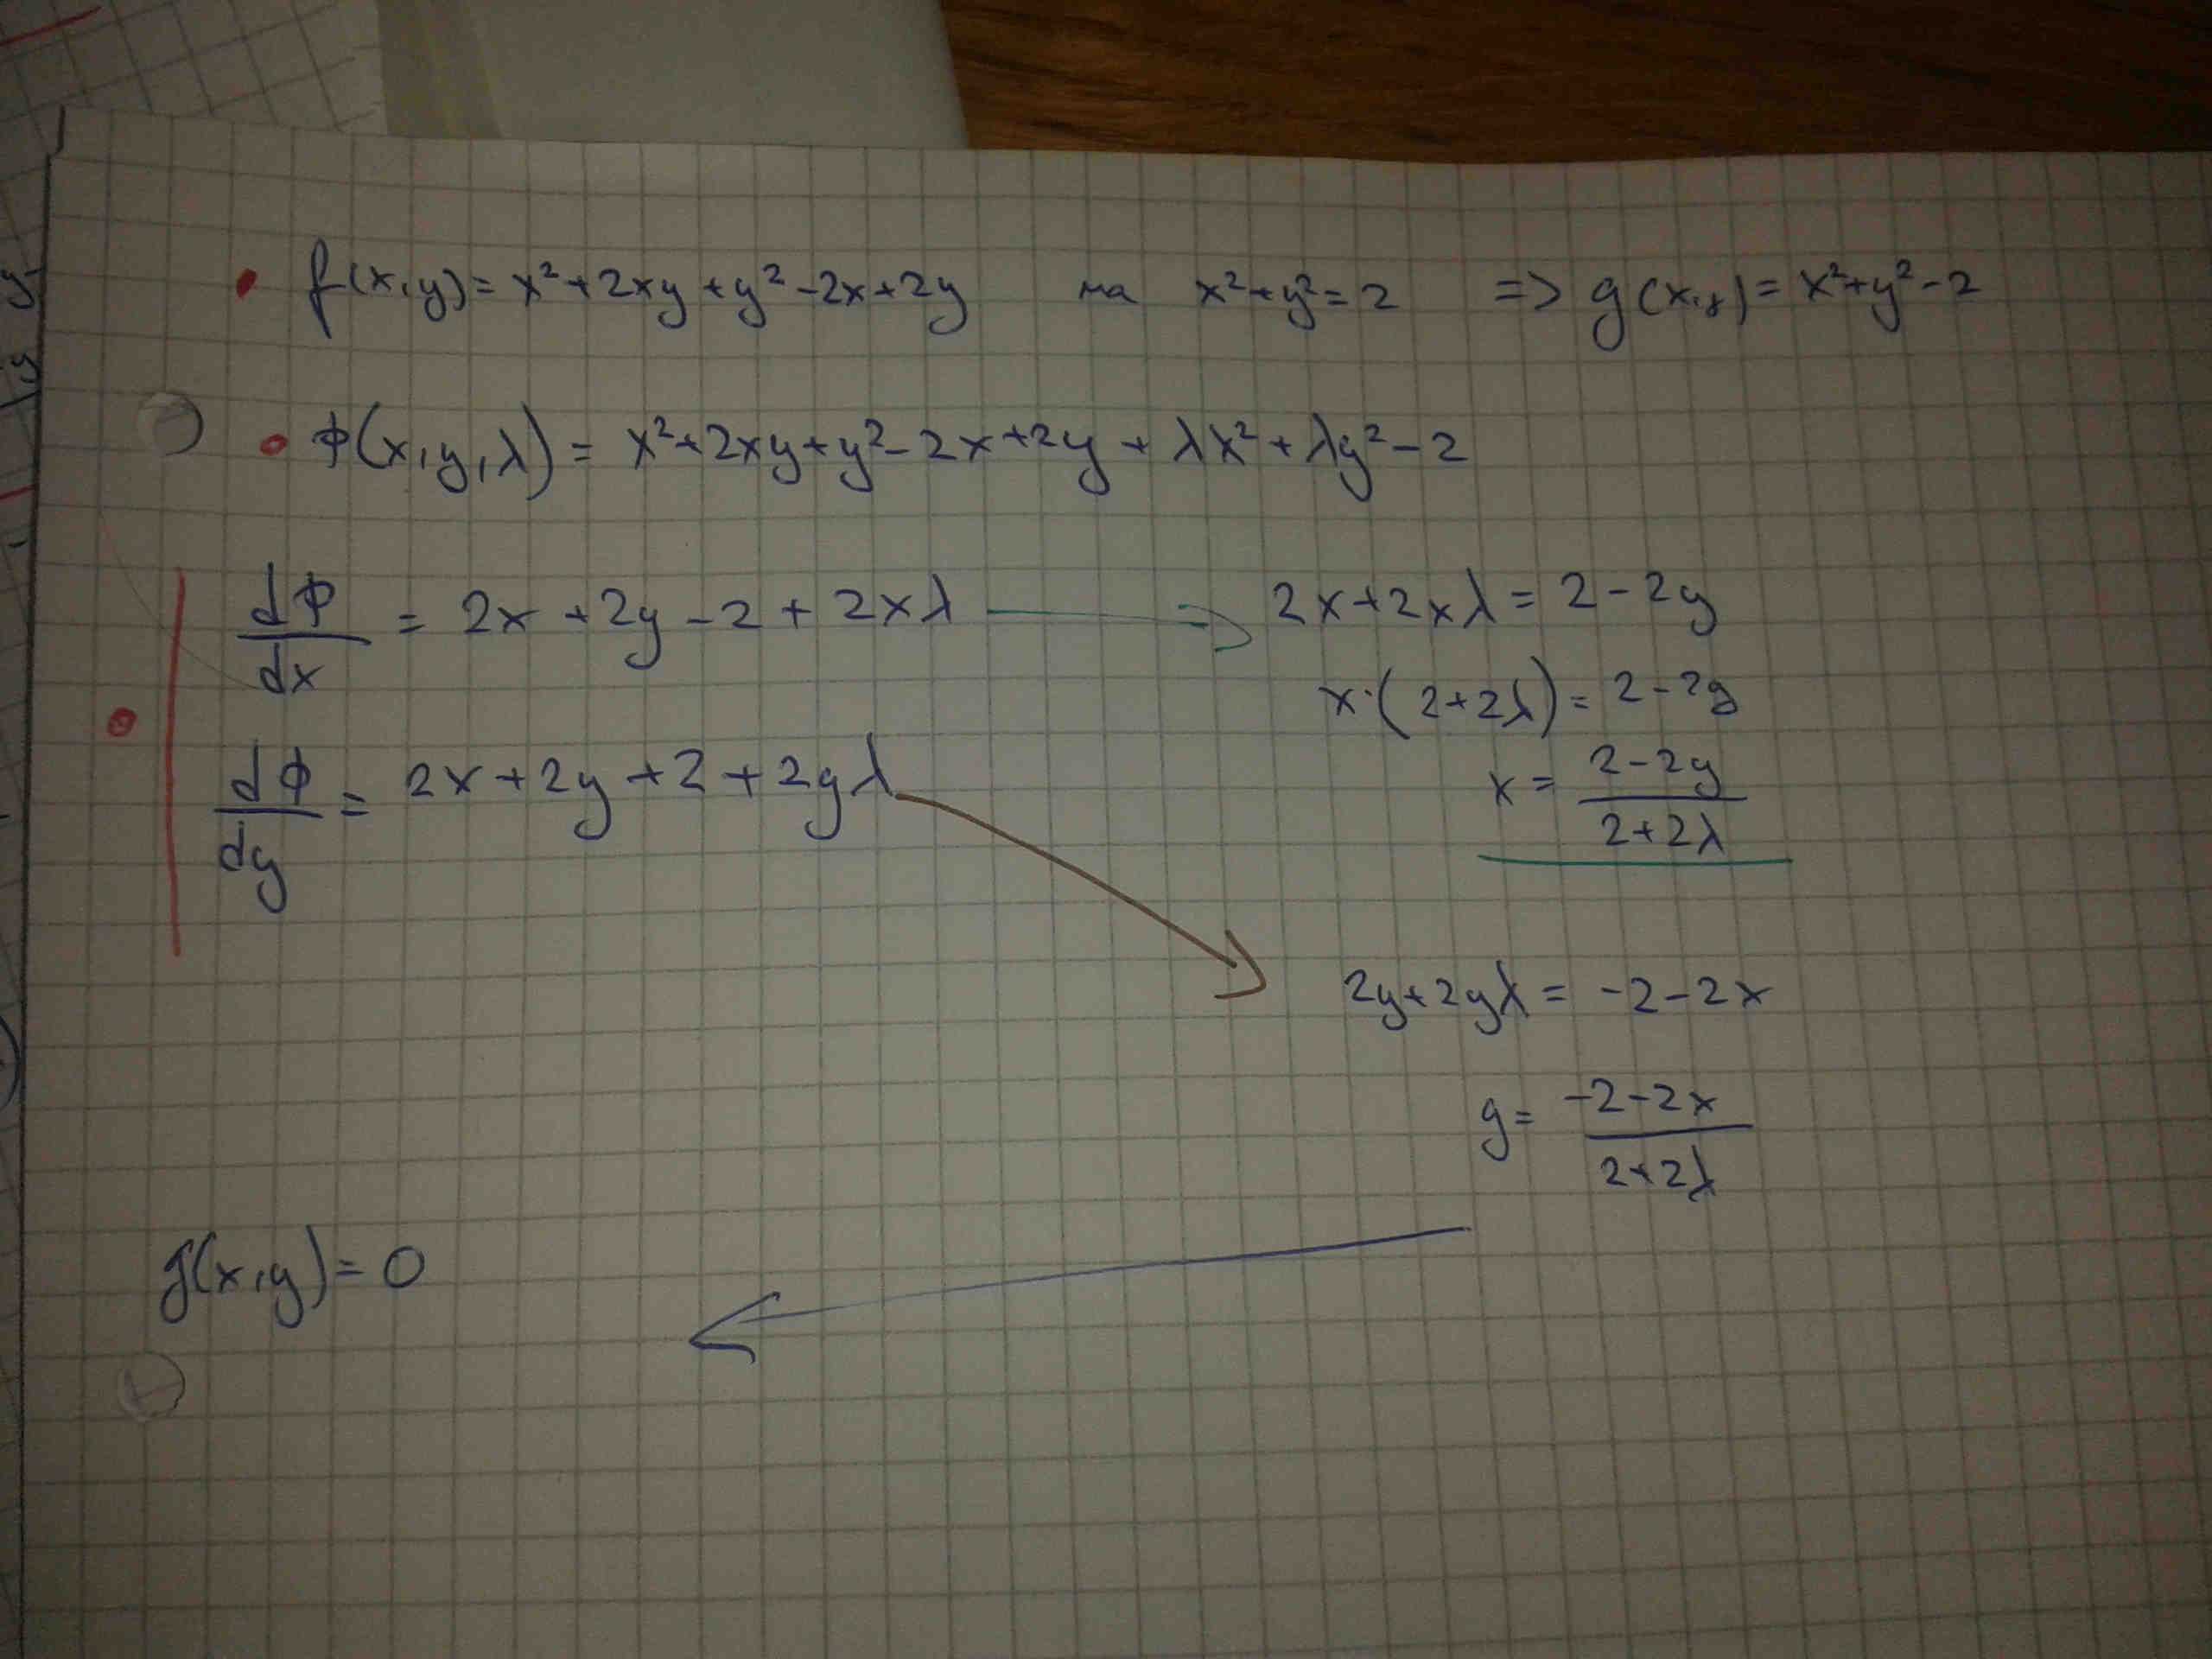 f(x,y) = x²+2xy+y²-2x+2y на x²+y²=2 => g(x,y) = x²+y²-2
ϕ(x,y,λ) = x²+2xy+y²-2x+2y+λx²+λy²-2
dϕ/dx = 2x+2y-2+2xλ → 2x+2xλ = 2-2y
x·(2+2λ) = 2-2y
dϕ/dy = 2x+2y+2+2yλ
x = (2-2y)/(2+2λ)
2y+2yλ = -2-2x
y = (-2-2x)/(2+2λ)
g(x,y) = 0